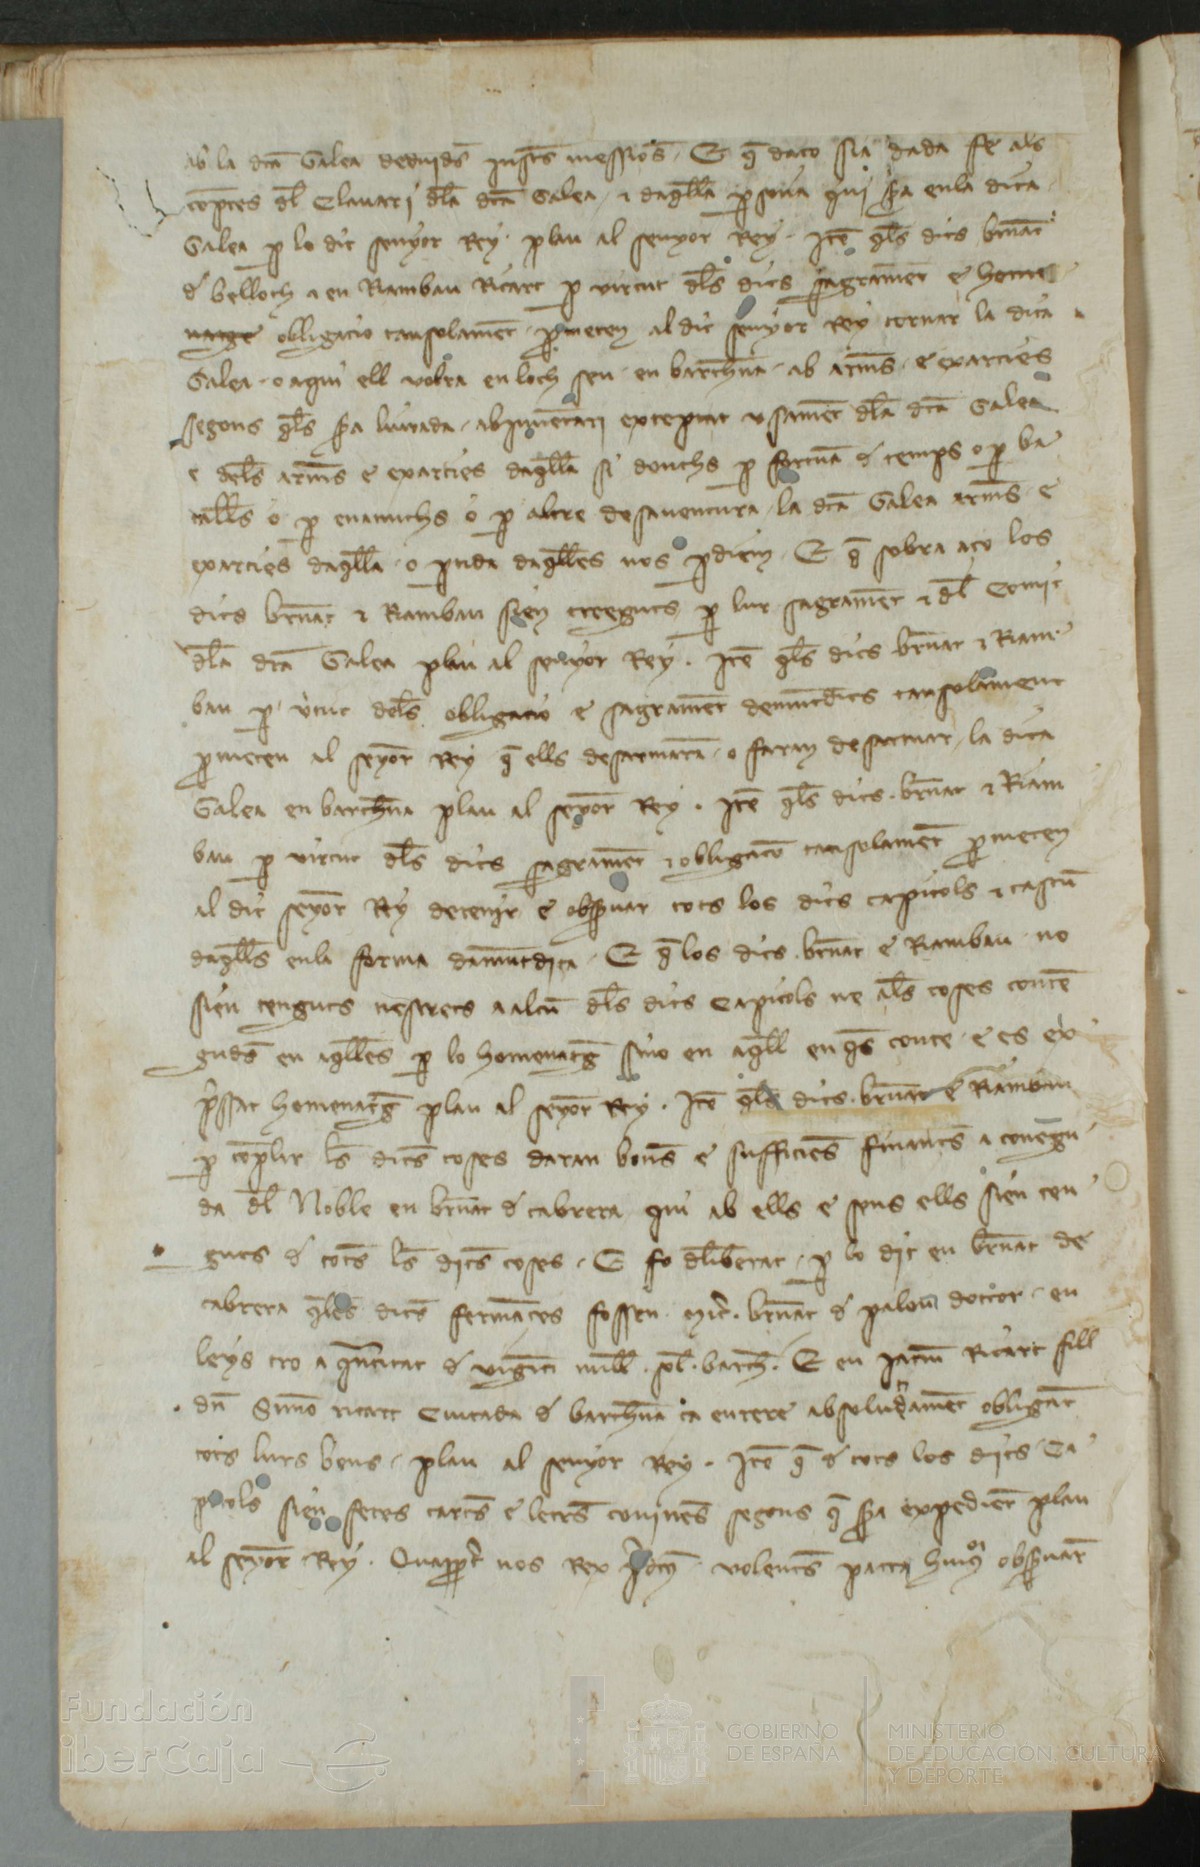 ab la dca Galea deduids justs messios · E q daco sia dada fe als
comptes dl Clavari dla dca Galea · ⁊ daqlla psona qui sra en la dita
Galea p lo dit senyor Rey · plau al senyor Rey · Ite qls dits brnat
d belloch ⁊ en Rambau Ricart p virtut dls dits sagramet e home
natge obligacio tansolamet · pmeten al dit senyor Rey tornar la dita
Galea · o aqui ell volra en loch seu · en barchna · ab arms · e exarcies
segons qls sra liurada · ab inventari exceptat usamet dla dca Galea
e dels arms e exarcies daqlla si donchs p fortua d temps o p ba
talls o p enamichs o p altre desaventura · la dca Galea arms · e
exarcies daqlla · o ptida daqlles nos pdien · E q sobra aço los
dits brnat ⁊ Rambau sien creeguts p lur sagramet ⁊ dl Comit
dla dca Galea plau al senyor Rey · Ite qls dits brnat ⁊ Ram
bau p vtut dels obligacio e sagramet demutdits tansolament
pmeten al seyor Rey q ells desarmara · o faran desarmar · la dita
Galea en barchna plau al seyor Rey · Ite qls dits · brnat ⁊ Ram
bau p virtut dls dits sagramet ⁊ obligaco tansolamet pmeten
al dit seyor Rey de tenir e obsruar tots los dits capitols ⁊ cascu
daqlls en la forma damutdita · E q los dits · brnat e Rambau · no
sien tenguts ne strets a alcu dls dits Capitols ne als coses conte
guds en aqlles p lo homenatg sino en aqll en qs conte · e es ex
pssat homenatg plau al seyor Rey · Ite qls dits · brnat e Rambau
p coplir ls dits coses daran bons e sufficies fmancs a conegu
da dl Noble en brnat d cabrera qui ab ells e sens ells sien ten
guts d tots ls dits coses · E fo dliberat · p lo dit en brnat de
cabrera qles dits fermaces fossen · mic · brnat d palou doctor · en
leys tro a qntitat d viginti mill · sol · barch · E en jacm Ricart fill
dn Simo ricart Ciutada d barchna ca entere absoludamet obligat
tots lurs bens · plau al senyor Rey · Ite q d tots los dits Ca
pitols sien fetes carts e letrs covines segons q sra expediet plau
al seyor Rey · Quappt nos Rex pdcus volents pacta huius obsruar
Fundación
iberCaja
GOBIERNO
DE ESPAÑA
MINISTERIO
DE EDUCACIÓN, CULTURA
Y DEPORTE